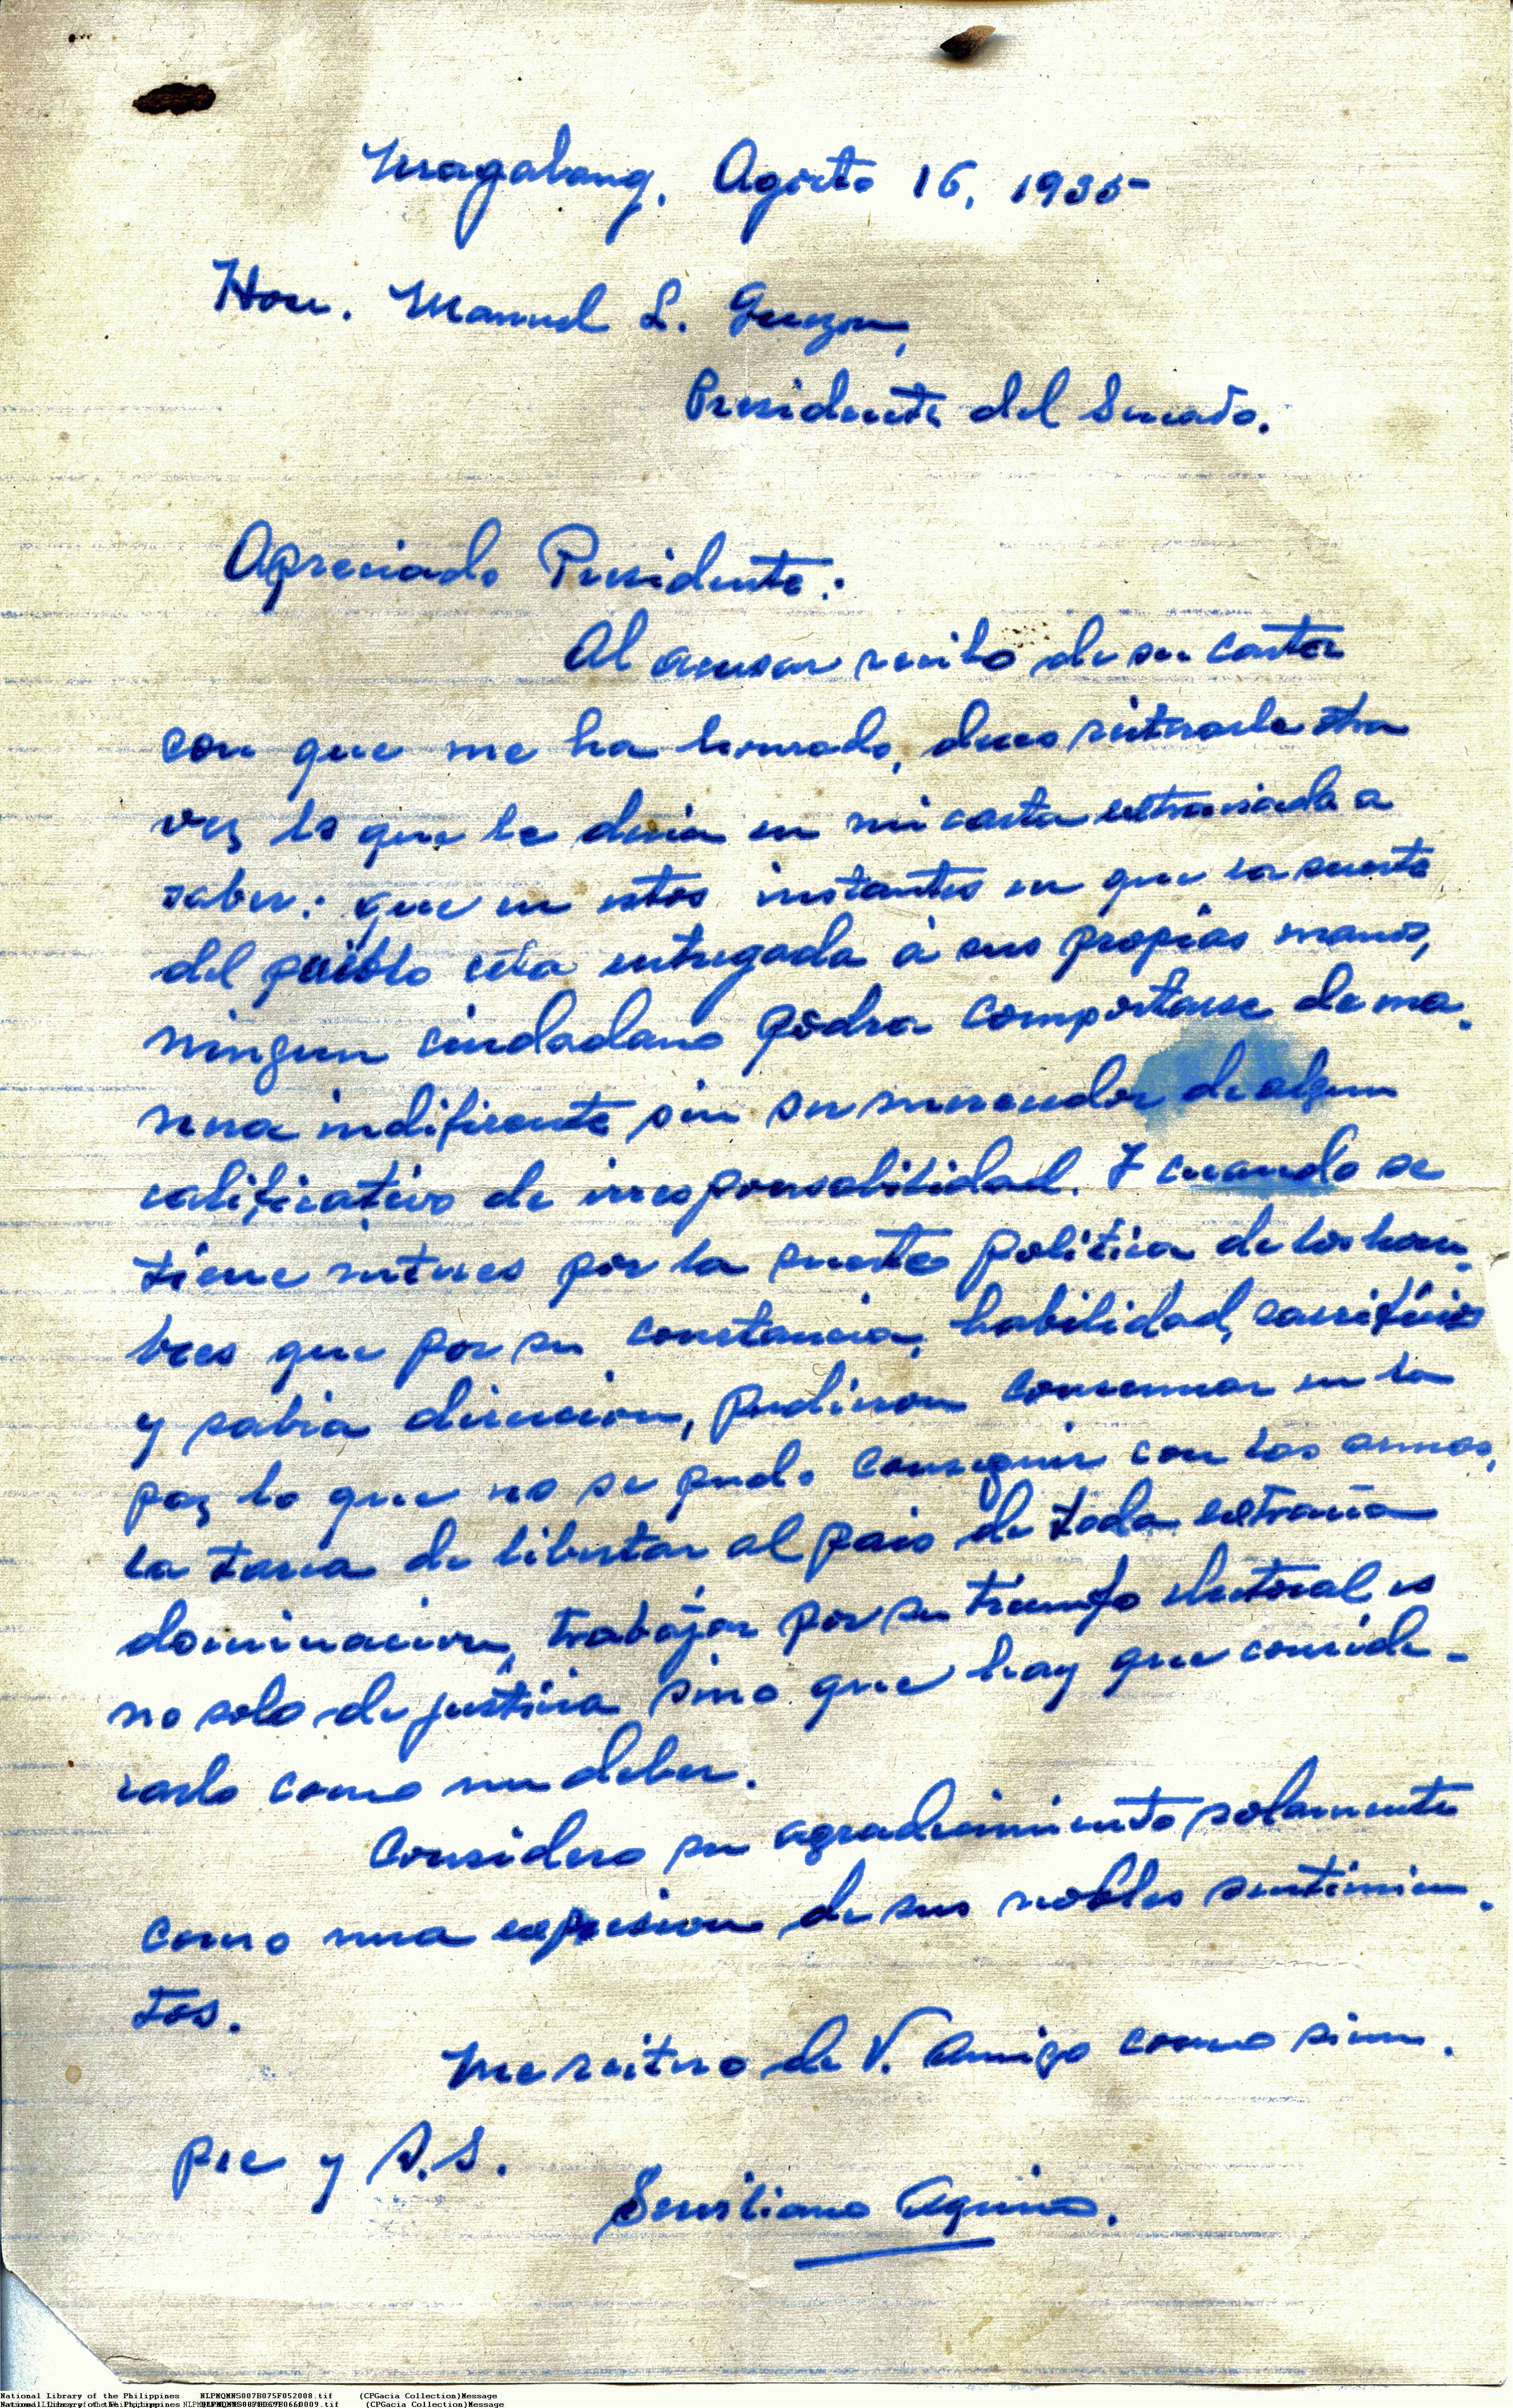 Magalang, Agosto 16, 1935
Hon. Manuel L. Quezon,
Presidente del Senado.
Apreciado Presidente:
Al acusar recibo de su carta
con que me ha honrado, deseo reiterarle otra
vez lo que le decia en mi carta extraviada a
saber: que en estos instantes en que la suerte
del pueblo esta entregada á sus propias manos,
ningun ciudadano podra comportarse de ma-
nera indiferente sin ser merecedor de algun
calificativo de irresponsabilidad. Y cuando se
tiene interes por la suerte politica de los hom-
bres que por su constancia, habilidad, sacrificios
y sabia direccion, pudieron consumar en la
paz lo que no se pudo conseguir con las armas,
la tarea de libertar al pais de toda extraña
dominacion, trabajar por su triunfo electoral es
no solo de justicia sino que hay que conside-
rarlo como un deber.
Considero su agradecimiento solamente
como una expresion de sus nobles sentimien-
tos.
Me reitero de V. amigo como siem-
pre y S.S.
Serviliano Aquino.
National Library of the Philippines NLPMQMNS007B075F052008.tif (CPGacia Collection)Message
(CPGacia Collection)Message